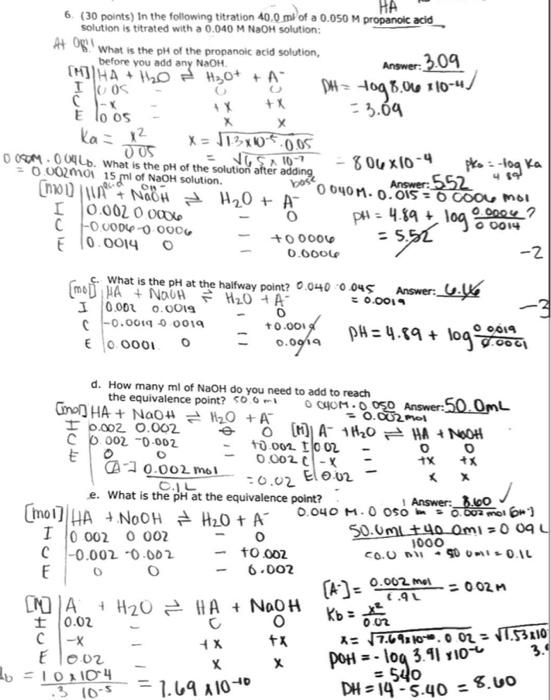 HA
6. (30 points) In the following titration 40.0 ml of a 0.050 M propanoic acid
solution is titrated with a 0.040 M NaOH solution:
What is the pH of the propanoic acid solution,
before you add any NaOH.
Answer: 3.09
[M] HA + H2O ⇌ H3O+ + A-
I 0.05 - 0 0
C -x - +x +x
E 0.05 - x x
pH = -log 8.06 x10-4
= 3.09
Ka = x²/0.05 x = √1.3x10-5 · 0.05
= √6.5 x 10-7 = 8.06x10-4
pKa = -log Ka
4.89
0.050M · 0.04L
= 0.002mol
b. What is the pH of the solution after adding
15 ml of NaOH solution.
Answer: 5.52
acid base
0.040M · 0.015 = 0.0006 mol
[mol] HA + NaOH ⇌ H2O + A-
I 0.002 0.0006 - 0
C -0.0006 -0.0006 - +0.0006
E 0.0014 0 - 0.0006
pH = 4.89 + log 0.0006/0.0014 ?
= 5.52
-2
c. What is the pH at the halfway point? 0.040 · 0.045
= 0.0019
Answer: 6.16
-3
[mol] HA + NaOH ⇌ H2O + A-
I 0.002 0.0019 - 0
C -0.0019 -0.0019 - +0.0019
E 0.0001 0 - 0.0019
pH = 4.89 + log 0.0019/0.0001
d. How many ml of NaOH do you need to add to reach
the equivalence point? 50.0 ml
0.040M · 0.050
= 0.002mol
Answer: 50.0mL
[mol] HA + NaOH ⇌ H2O + A-
I 0.002 0.002 0
C 0.002 -0.002 - +0.002
E 0 0 - 0.002
[M] A- + H2O ⇌ HA + NaOH
I 0.02 - 0 0
C -x - +x +x
E 0.02 - x x
[A-] 0.002 mol/0.1L = 0.02
e. What is the pH at the equivalence point?
Answer: 8.60
0.040 M · 0.050 = 0.002 mol [OH-]
[mol] HA + NaOH ⇌ H2O + A-
I 0.002 0.002 - 0
C -0.002 -0.002 - +0.002
E 0 0 - 0.002
50.0ml + 40.0ml = 0.09 L
1000
[A-] = 0.002 mol = 0.02M
[M] A- + H2O ⇌ HA + NaOH
I 0.02 - 0 0
C -x - +x +x
E 0.02 - x x
Kb = x²/0.02
x = √7.69x10-10 · 0.02 = √1.53x10
pOH = -log 3.91 x10-6
= 5.40
pH = 14 - 5.40 = 8.60
= 7.69 x10-10